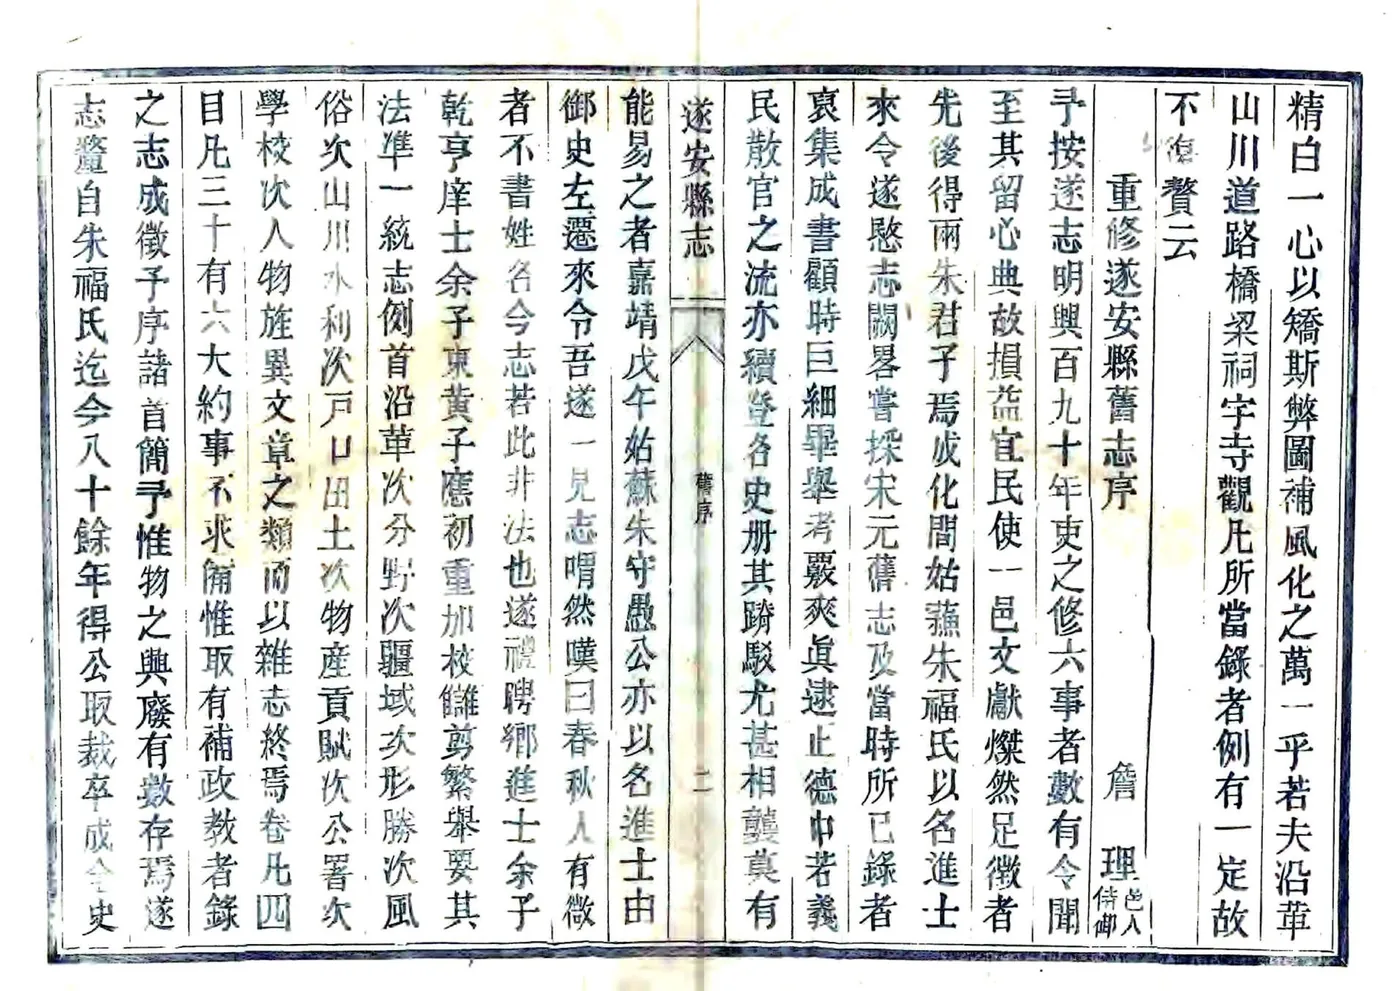 精白一心以矯斯弊圖補風化之萬一乎若夫沿革
山川道路橋梁祠宇寺觀凡所當錄者例有一定故
不復贅云
重修遂安縣舊志序 詹理 邑人侍御
予按遂志明興百九十年吏之修六事者數有令聞
至其留心典故損益宜民使一邑文獻燦然足徵者
先後得兩朱君子焉成化間姑蘓朱福氏以名進士
來令遂慜志闕畧嘗採宋元舊志及當時所已錄者
裒集成書顧時巨細畢舉考覈爽眞逮正德中若義
民散官之流亦續登名史册其踳駁尤甚相襲莫有
遂安縣志 舊序 二
能易之者嘉靖戊午姑蘇朱守愚公亦以名進士由
御史左遷來令吾遂一見志喟然嘆曰春秋人有微
者不書姓名今志若此非法也遂禮聘鄉進士余子
乾亨庠士余子東黄子應初重加校讎剪繁舉要其
法準一統志例首沿革次分野次疆域次形勝次風
俗次山川水利次戸口田土次物產貢賦次公署次
學校次人物旌異文章之類而以雜志終焉卷凡四
目凡三十有六大約事不求備惟取有補政教者錄
之志成徵予序諸首簡予惟物之興廢有數存焉遂
志釐自朱福氏迄今八十餘年得公取裁卒成全史